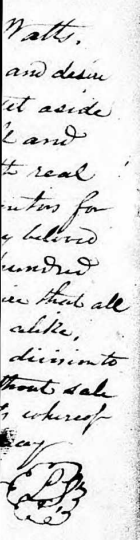 Watts.
and desire
set aside
and
real
for
beloved
hundred
that all
alike,
division to
thout sale
whereof
day
L.S.